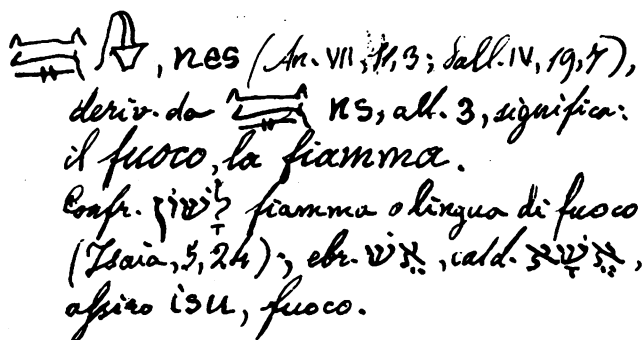 , nes (An. VII, 11, 3; Sall. IV, 19, 7),
deriv. da ns, all. 3, significa:
il fuoco, la fiamma.
Confr. לָשׁוֹן fiamma o lingua di fuoco
(Isaia, 5, 24); ebr. אֵשׁ, cald. אֵשָׁא,
assiro isu, fuoco.